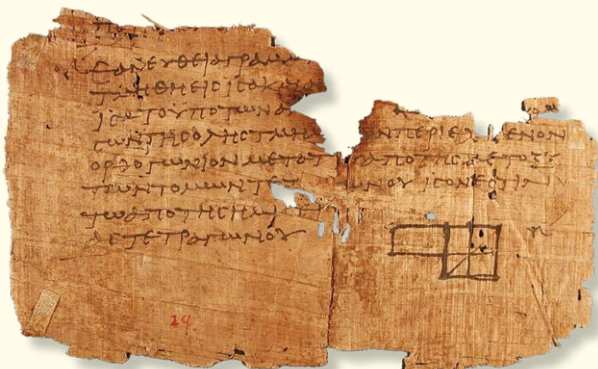 ΕΑΝΕΥΘΕΙΑΓΡΑΜΜ
ΤΜΗΘΗΕΙϹΙϹΑΚΑΙ
ΙϹΑΤΟΥΠΟΤΩΝΑ
ϹΩΝΤΗϹΟΛΗϹΤΜΗ ΩΝΠΕΡΙΕΧ ΕΝΟΝ
ΟΡΘΟΓΩΝΙΟΝΜΕΤΑΤ ΑΠΟΤΗϹΜΕΤΟΞΥ
ΤΩΝΤΟΜΩΝΤΕΤ ΩΝΟΥΙϹΟΝΕϹΤΙΝ
ΤΩΑΠΟΤΗϹΗΜΙϹΕΙ
ΑϹΤΕΤΡΑΓΩΝΟΥ
29.